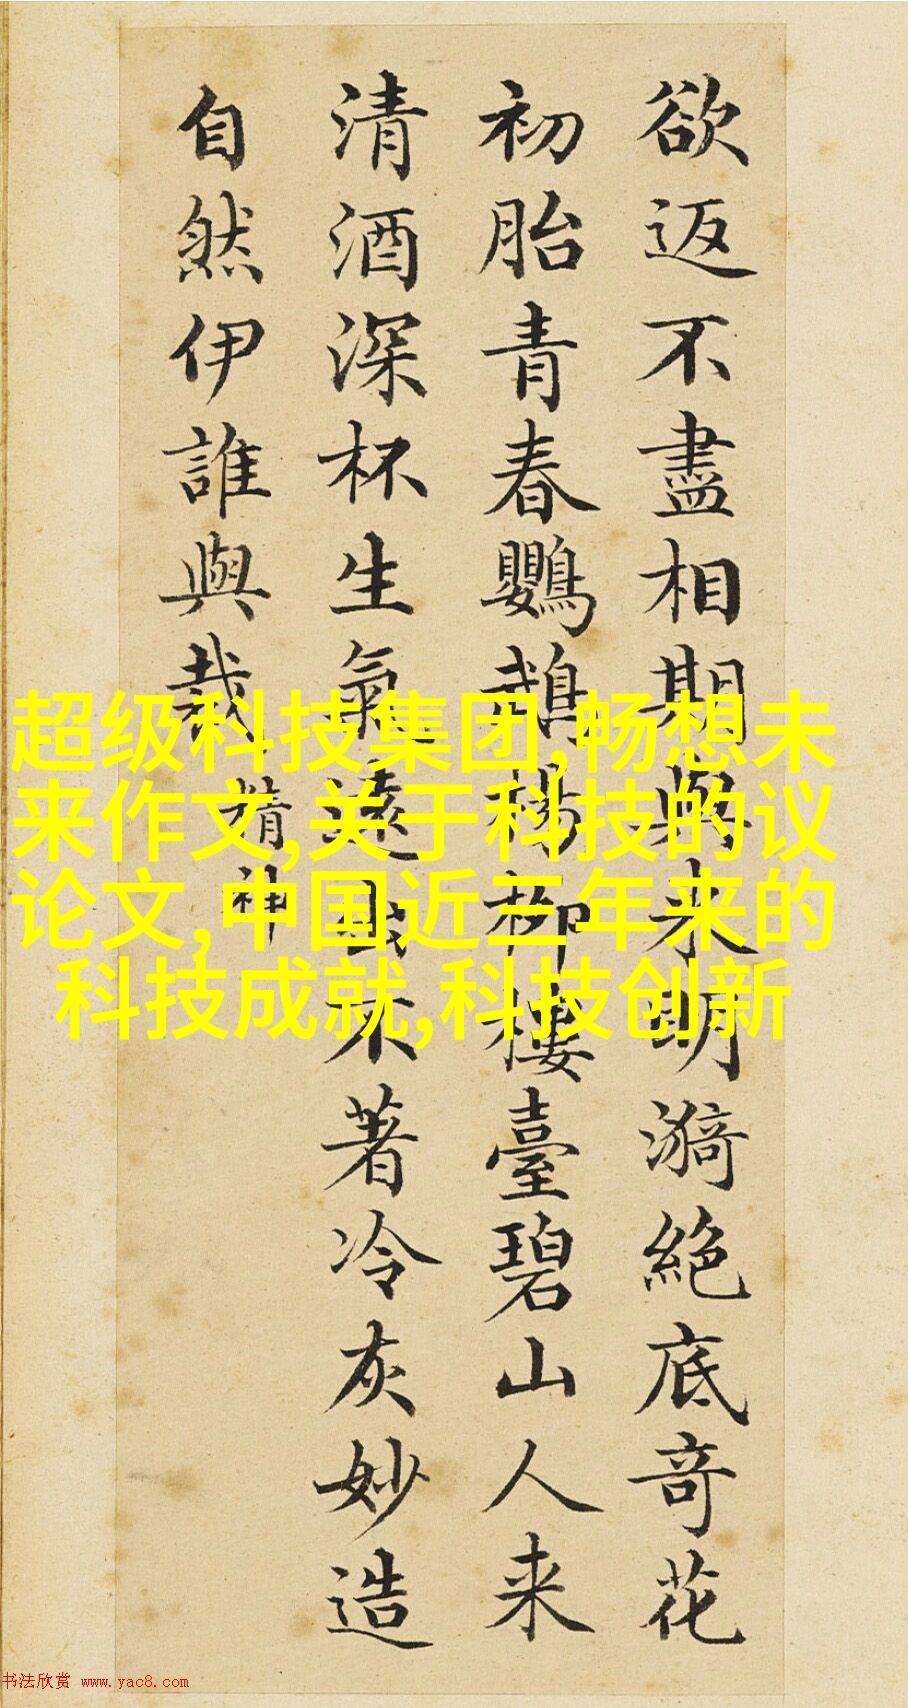 欲返不盡相期與来明漪絶底奇花
初胎青春鸚鵡楊柳樓臺碧山人来
清酒深杯生氣遠出不著冷灰妙造
自然伊誰與裁
精神
超级科技集团,畅想未
来作文,关于科技的议
论文,中国近三年来的
科技成就,科技创新
书法欣赏 www.yac8.com